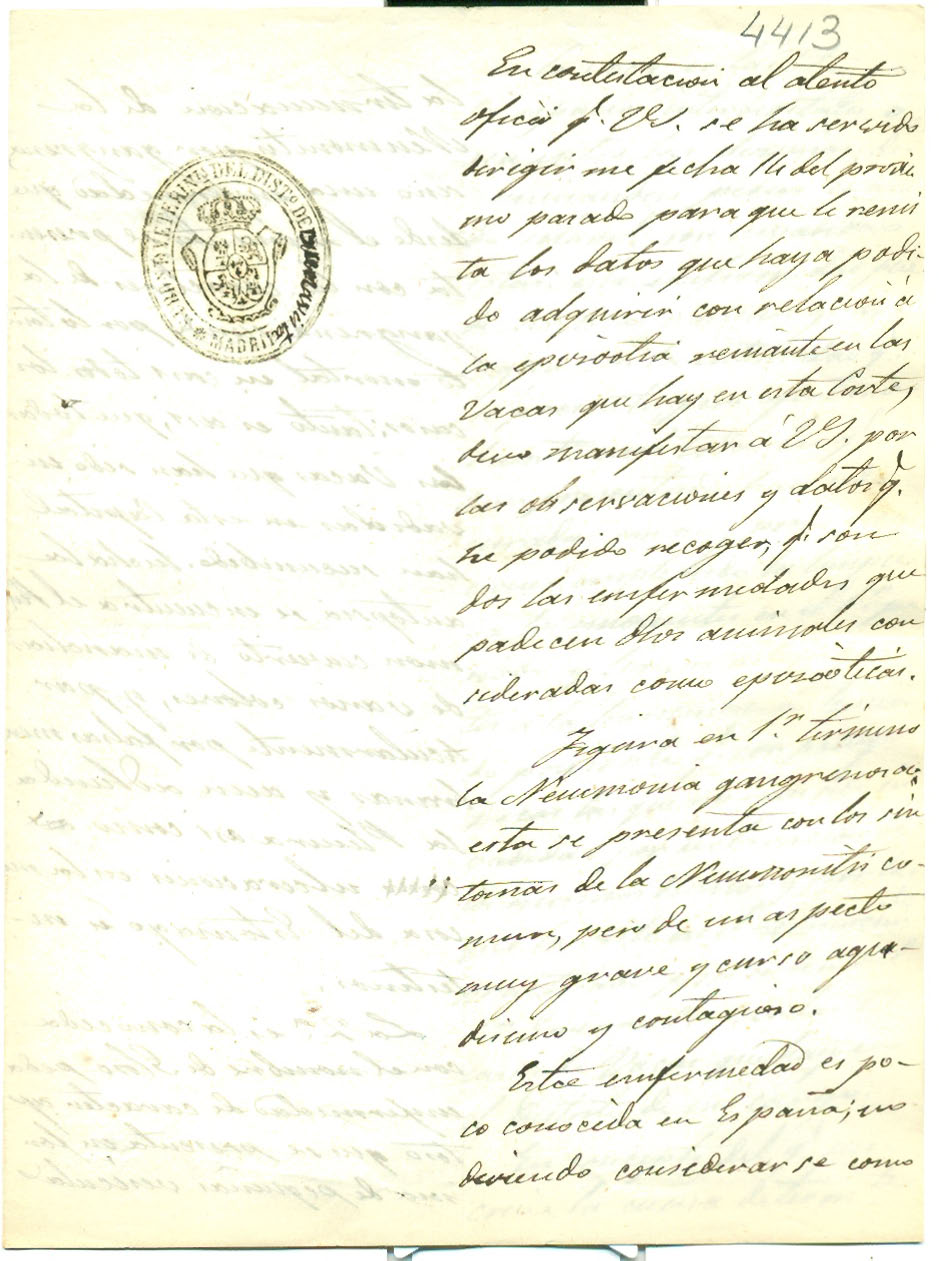 4413
En contestacion al atento
oficio q.e VS. se ha servido
dirigirme fecha 14 del proxi
mo pasado para que le remi
ta los datos que haya podi-
do adquirir con relacion á
la epizootia reinante en las
Vacas que hay en esta Corte,
devo manifestar á VS. por
las observaciones y datos q.e
he podido recoger, q.e son
dos las enfermedades que
padecen dhos animales con
sideradas como epizoóticas.
Figura en 1.r término
la Neumonia gangrenosa;
esta se presenta con los sin
tomas de la Neumonitis co-
mun, pero de un aspecto
muy grave y curso agu-
disimo y contagioso.
Esta enfermedad es po-
co conocida en España; no
deviendo considerarse como
SUBDELEGADO VETERINO DEL DISTO DE
MADRID